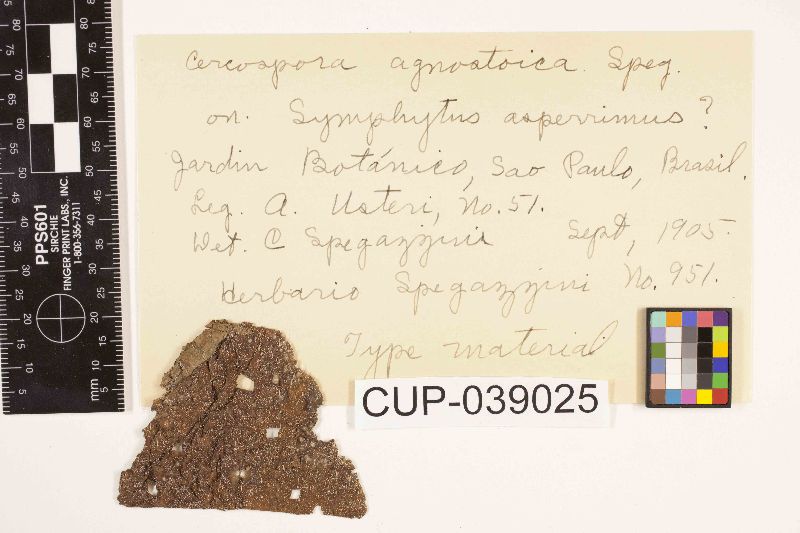 Cercospora agnostoica. Speg.
on. Symphytus asperrimus?
Jardin Botánico, Sao Paulo, Brasil.
Leg. A. Usteri, No. 51.
Det. C Spegazzini Sept, 1905.
Herbario Spegazzini No. 951.
Type material
CUP-039025
PPS601
SIRCHIE
FINGER PRINT LABS., INC.
1-800-356-7311
80
75
70
65
60
55
50
45
40
35
30
25
20
15
10
5
mm